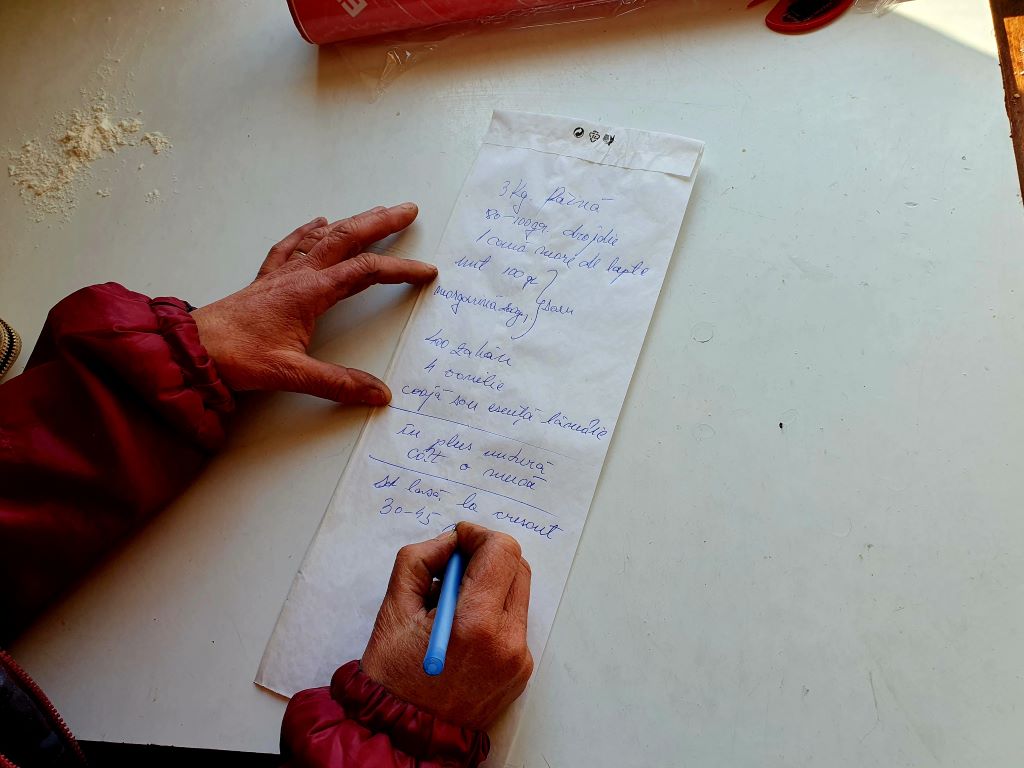 3 Kg. Făină
80-100gr. drojdie
1 cană mare de lapte
unt 100 gr
margarină 200gr, } sau
400 zahăr
4 vanilie
coajă sau esență lămâie
în plus untură
cât o nucă
Se lasă la crescut
30-45